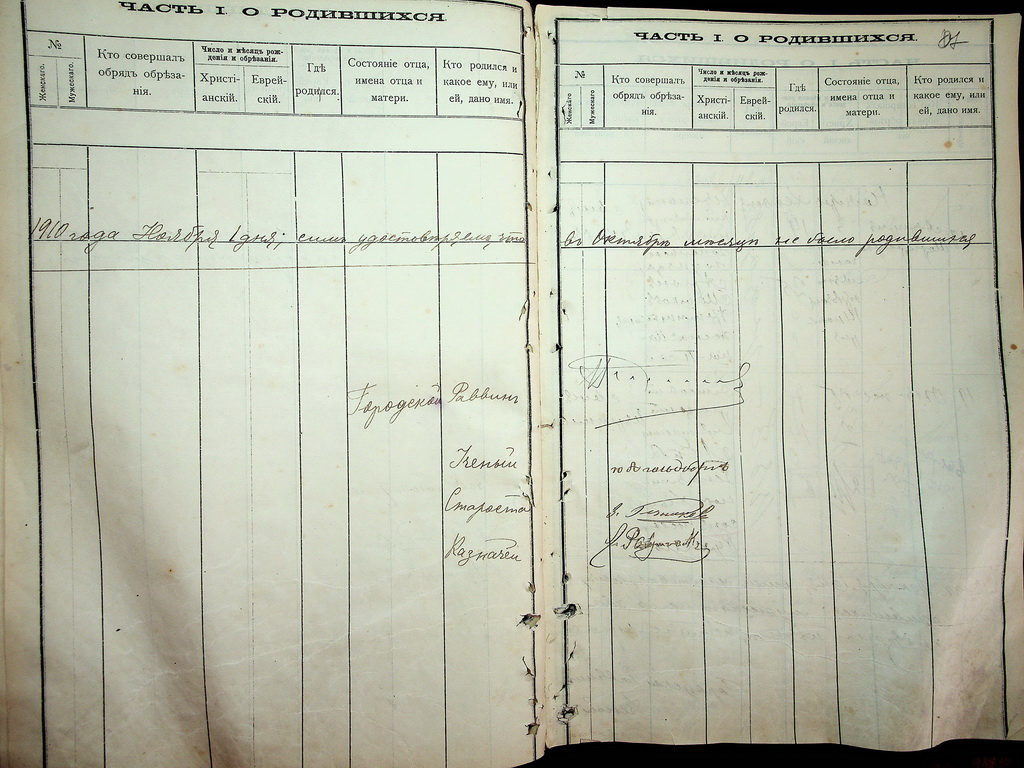 ЧАСТЬ I. О РОДИВШИХСЯ
№
Женскаго.
Мужескаго.
Кто совершалъ обрядъ обрѣза-
нія.
Число и мѣсяцъ рож-
денія и обрѣзанія.
Христі-
анскій.
Еврей-
скій.
Гдѣ
родился.
Состояніе отца,
имена отца и
матери.
Кто родился и
какое ему, или
ей, дано имя.
1910 года Ноября 1 дня; симъ удостовѣряемъ что
Городской Раввинъ
Ученый
Староста
Казначей
ЧАСТЬ I. О РОДИВШИХСЯ.
№
Женскаго
Мужескаго
Кто совершалъ
обрядъ обрѣза-
нія.
Число и мѣсяцъ рож-
денія и обрѣзанія.
Христі-
анскій.
Еврей-
скій.
Гдѣ
родился.
Состояніе отца,
имена отца и
матери.
Кто родился и
какое ему, или
ей, дано имя.
въ Октябрѣ мѣсяцѣ не было родившихся